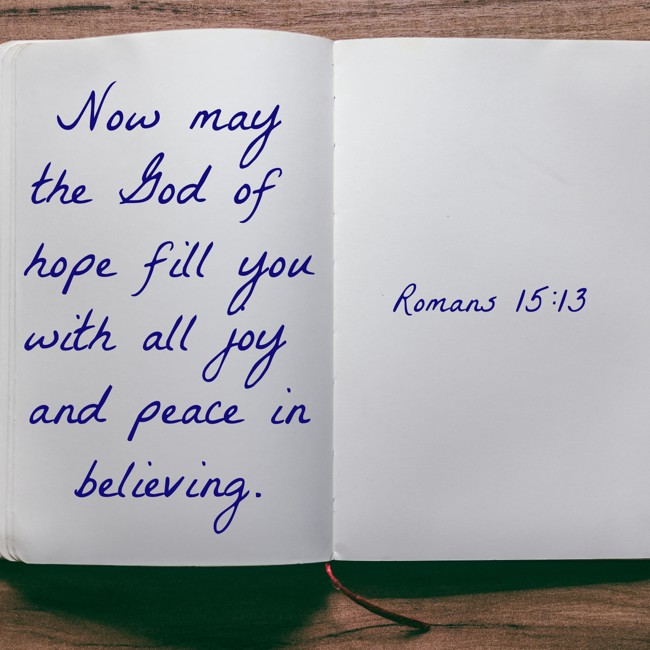 Now may
the God of
hope fill you
with all joy
and peace in
believing.
Romans 15:13